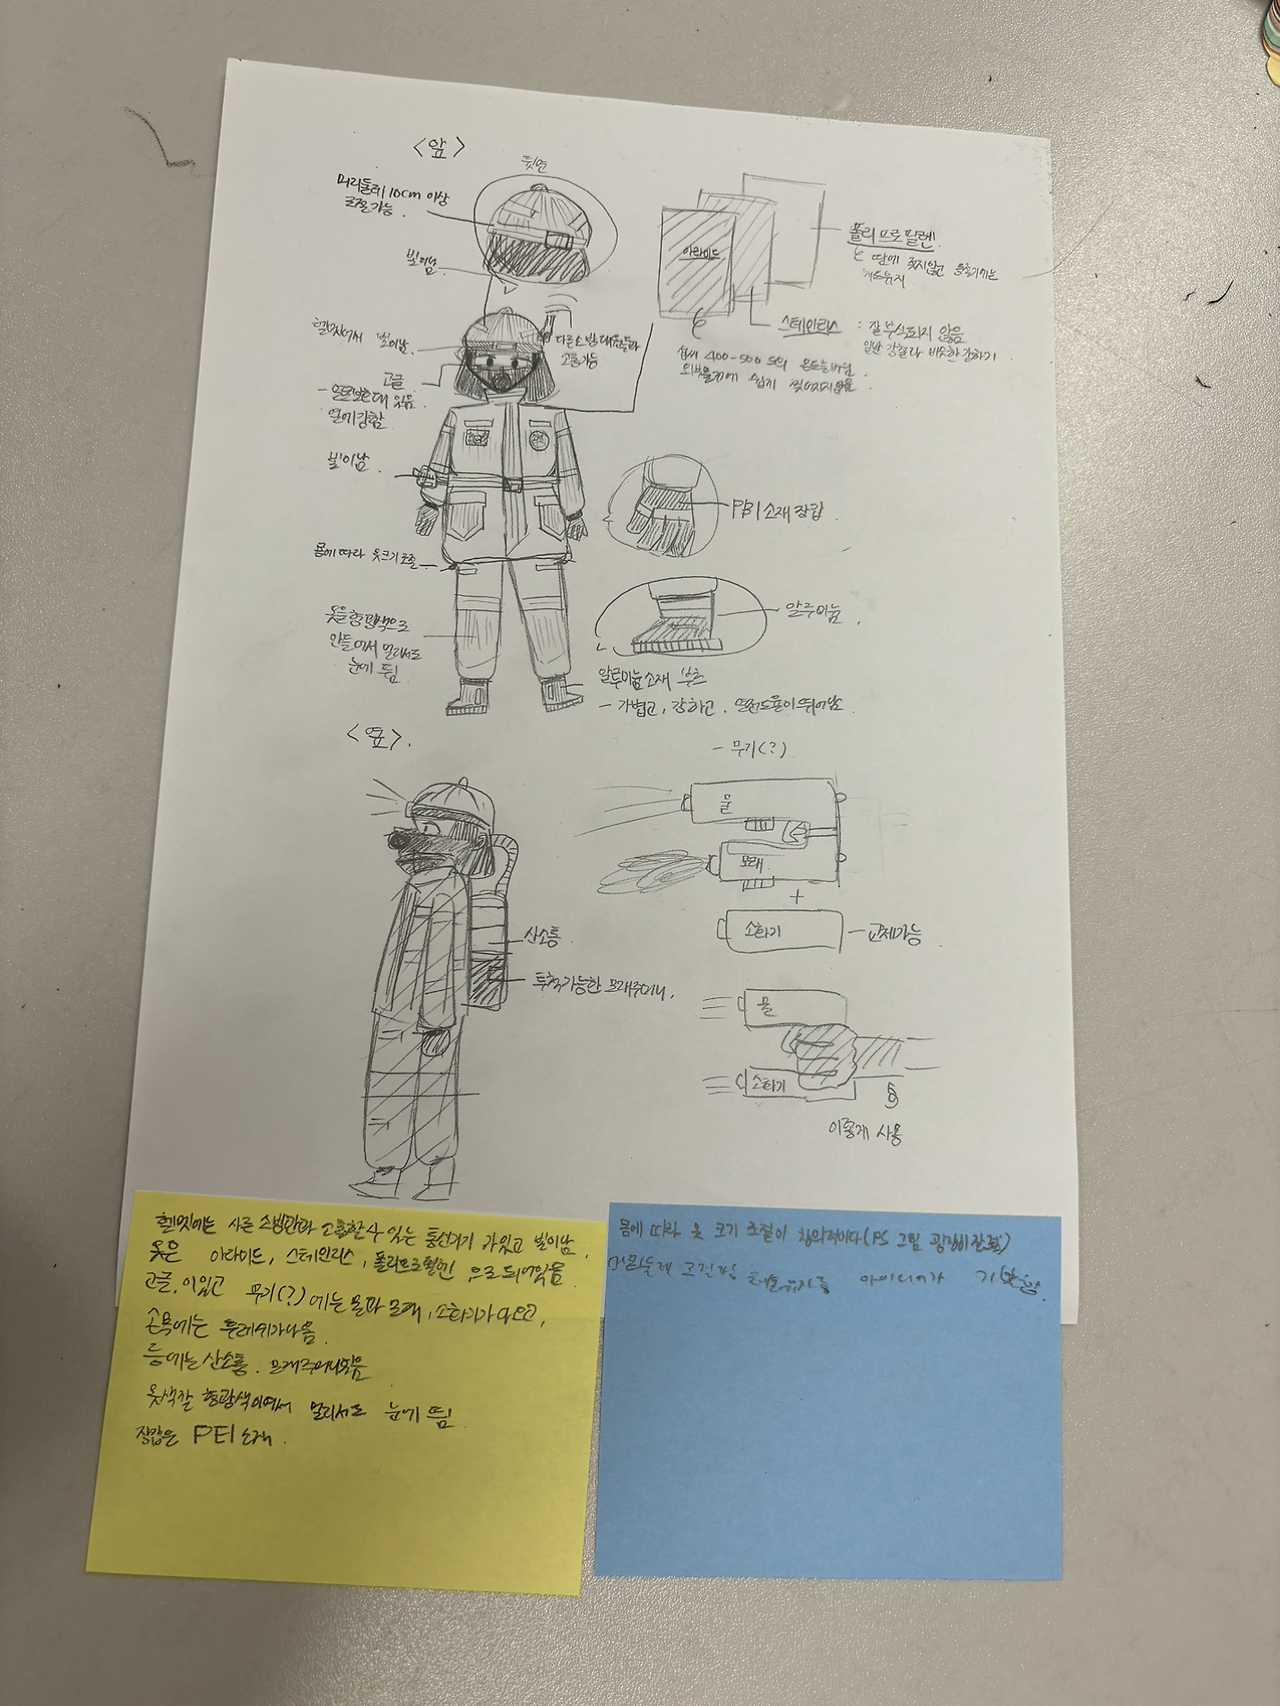 <앞>
뒷면
머리둘레 10cm 이상
조절 가능
빛이남
헬멧에서 빛이남
다른 소방대원들과
교통가능
고글
열에 강함
빛이남
몸에 따라 옷크기 조절
옷을 형광색으로
만들어서 멀리서도
눈에 띔
아라미드
폴리프로필렌
땀에 젖지않고
스테인리스 : 잘 부식되지 않음
일반 강철과 비슷한 강하기
섭씨 400-500 도의 온도를 버팀
외부물질에 쉽게 찢어지지않음
PBI 소재 장갑
알루미늄
알루미늄 소재 부츠
- 가볍고, 강하고, 열전도율이 뛰어남
<옆>.
- 무기(?)
물
모래
+
소화기 - 교체가능
산소통
투척가능한 모래주머니
물
소화기
이렇게 사용
헬멧에는 다른 소방관과 소통할 수 있는 통신기기가 있고 빛이남.
옷은 아라미드, 스테인리스, 폴리프로필렌 으로 되어있음
고글이 있고 무기(?)에는 물과 모래, 소화기가 있고,
손목에는 후레쉬가 나옴
등에는 산소통, 모래주머니 있음
옷 색깔 형광색이여서 멀리서도 눈에 띔
장갑은 PEI 소재.
몸에 따라 옷 크기 조절이 창의적이다 (PS 그림 굉장히 잘그림)
아이디어가